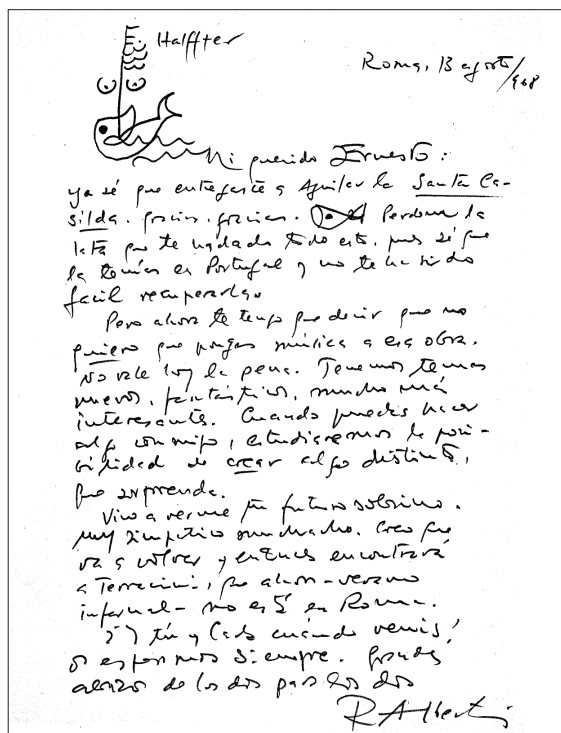 E. Halffter
Roma, 13 agosto/968
Mi querido Ernesto:
ya sé que entregaste a Aguilar la Santa Ca-
silda. gracias. gracias. Perdona la
lata que te ha dado todo esto, pues sé que
la tenías en Portugal y no te ha sido
fácil recuperarla.
Pero ahora te tengo que decir que no
quiero que pongas música a esa obra.
No vale hoy la pena. Tenemos temas
nuevos, fantásticos, mucho más
interesantes. Cuando puedas hacer
algo conmigo, estudiaremos la posi-
bilidad de crear algo distinto,
que sorprenda.
Vino a verme tu futuro sobrino.
Muy simpático muchacho. Creo que
va a volver y entonces encontrará
a Terracini, que ahora - verano
infernal - no está en Roma.
¿Y tú y cuándo venís?
Os esperamos siempre. Grandes
abrazos de los dos para los dos
R Alberti